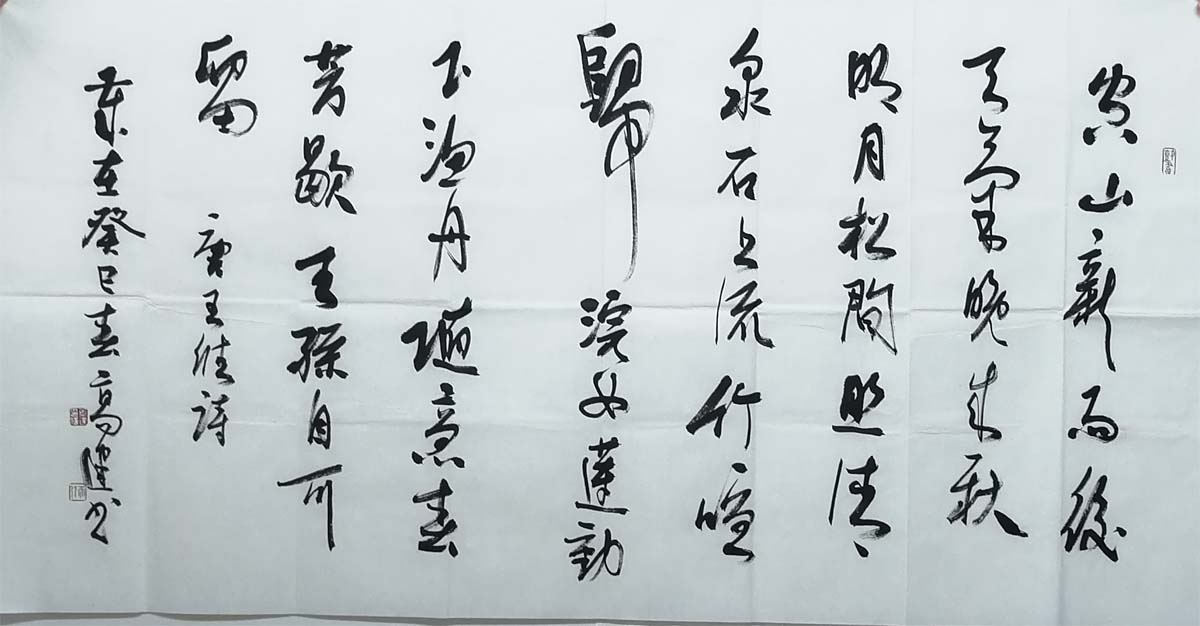 空山新雨後
天氣晚來秋
明月松間照清
泉石上流竹喧
歸浣女蓮動
下漁舟隨意春
芳歇王孫自可
留 唐王維詩
歲在癸巳春高書